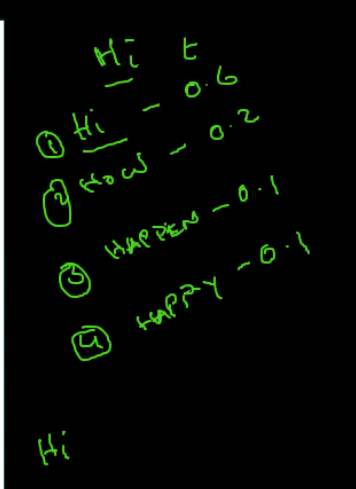 Hi t
① Hi - 0.6
② HOW - 0.2
③ HAPPEN - 0.1
④ HAPPY - 0.1
Hi